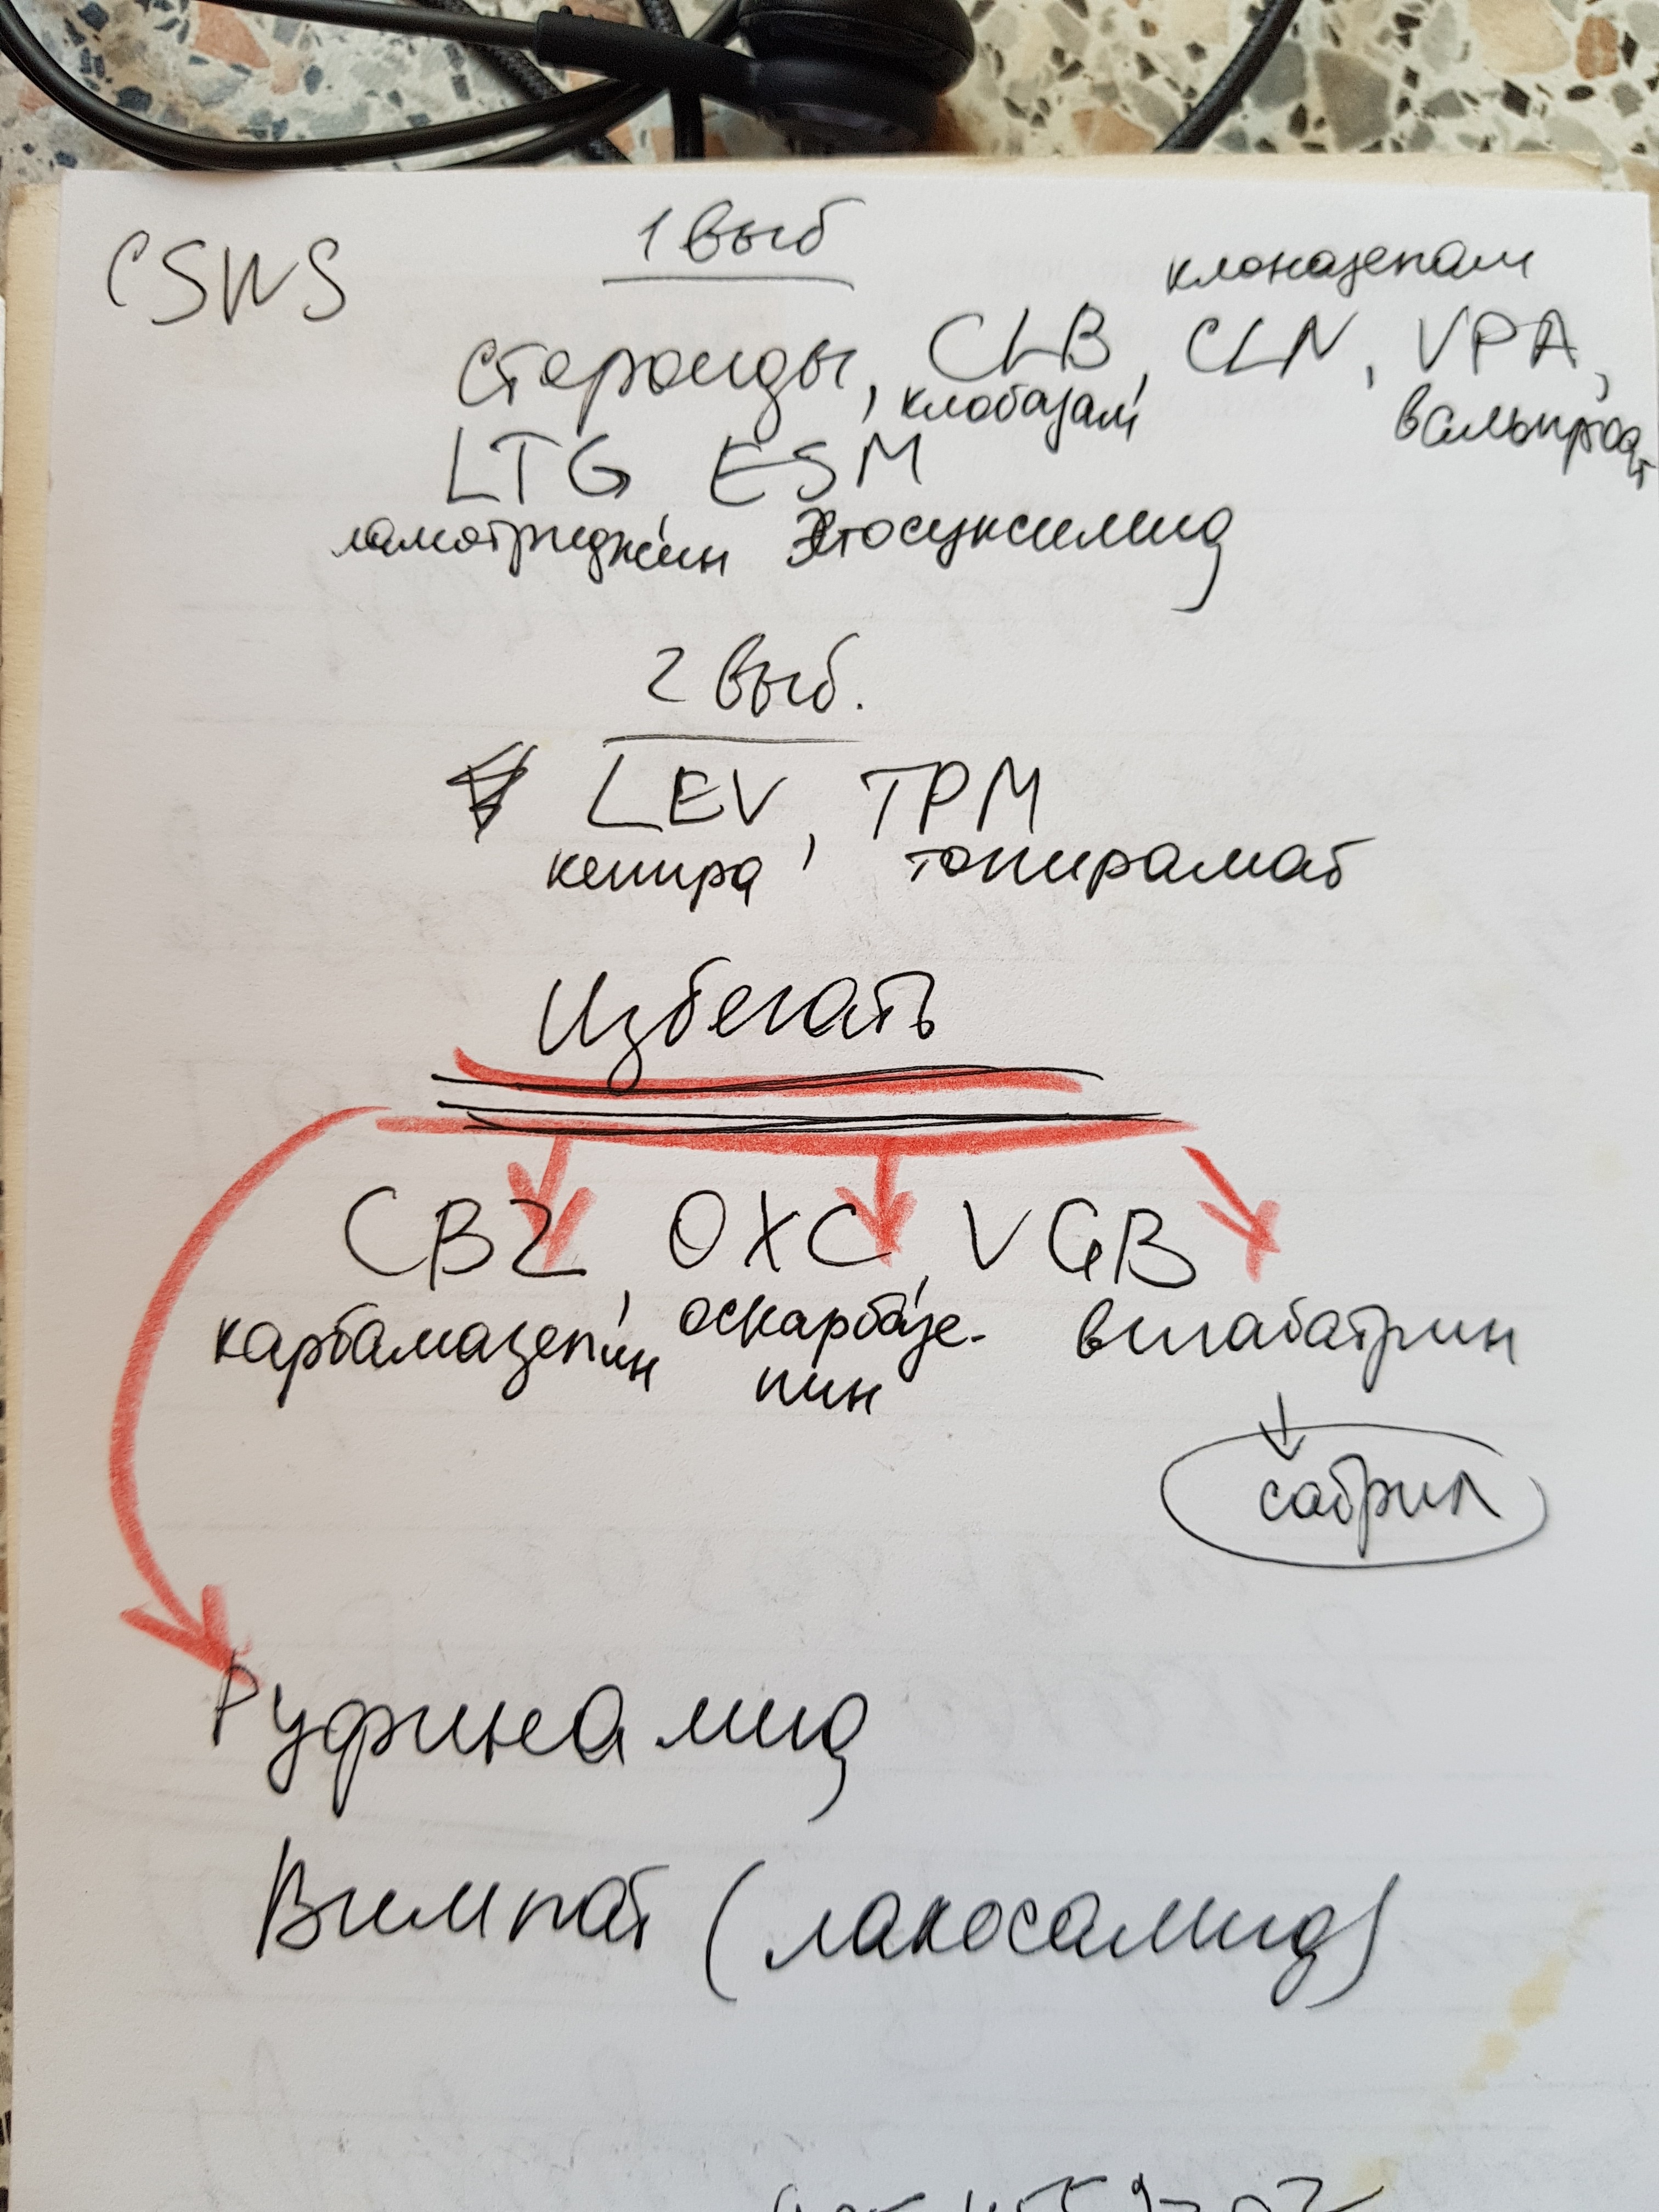 CSWS
1 выб
клоназепам
Стероиды, CLB, CLN, VPA,
клобазам вальпроат
LTG ESM
ламотриджин Этосуксимид
2 выб.
LEV, TPM
кеппра топирамат
Избегать
CBZ, OXC, VGB
карбамазепин оскарбазе-
пин
вигабатрин
сабрил
Руфинамид
Вимпат (лакосамид)